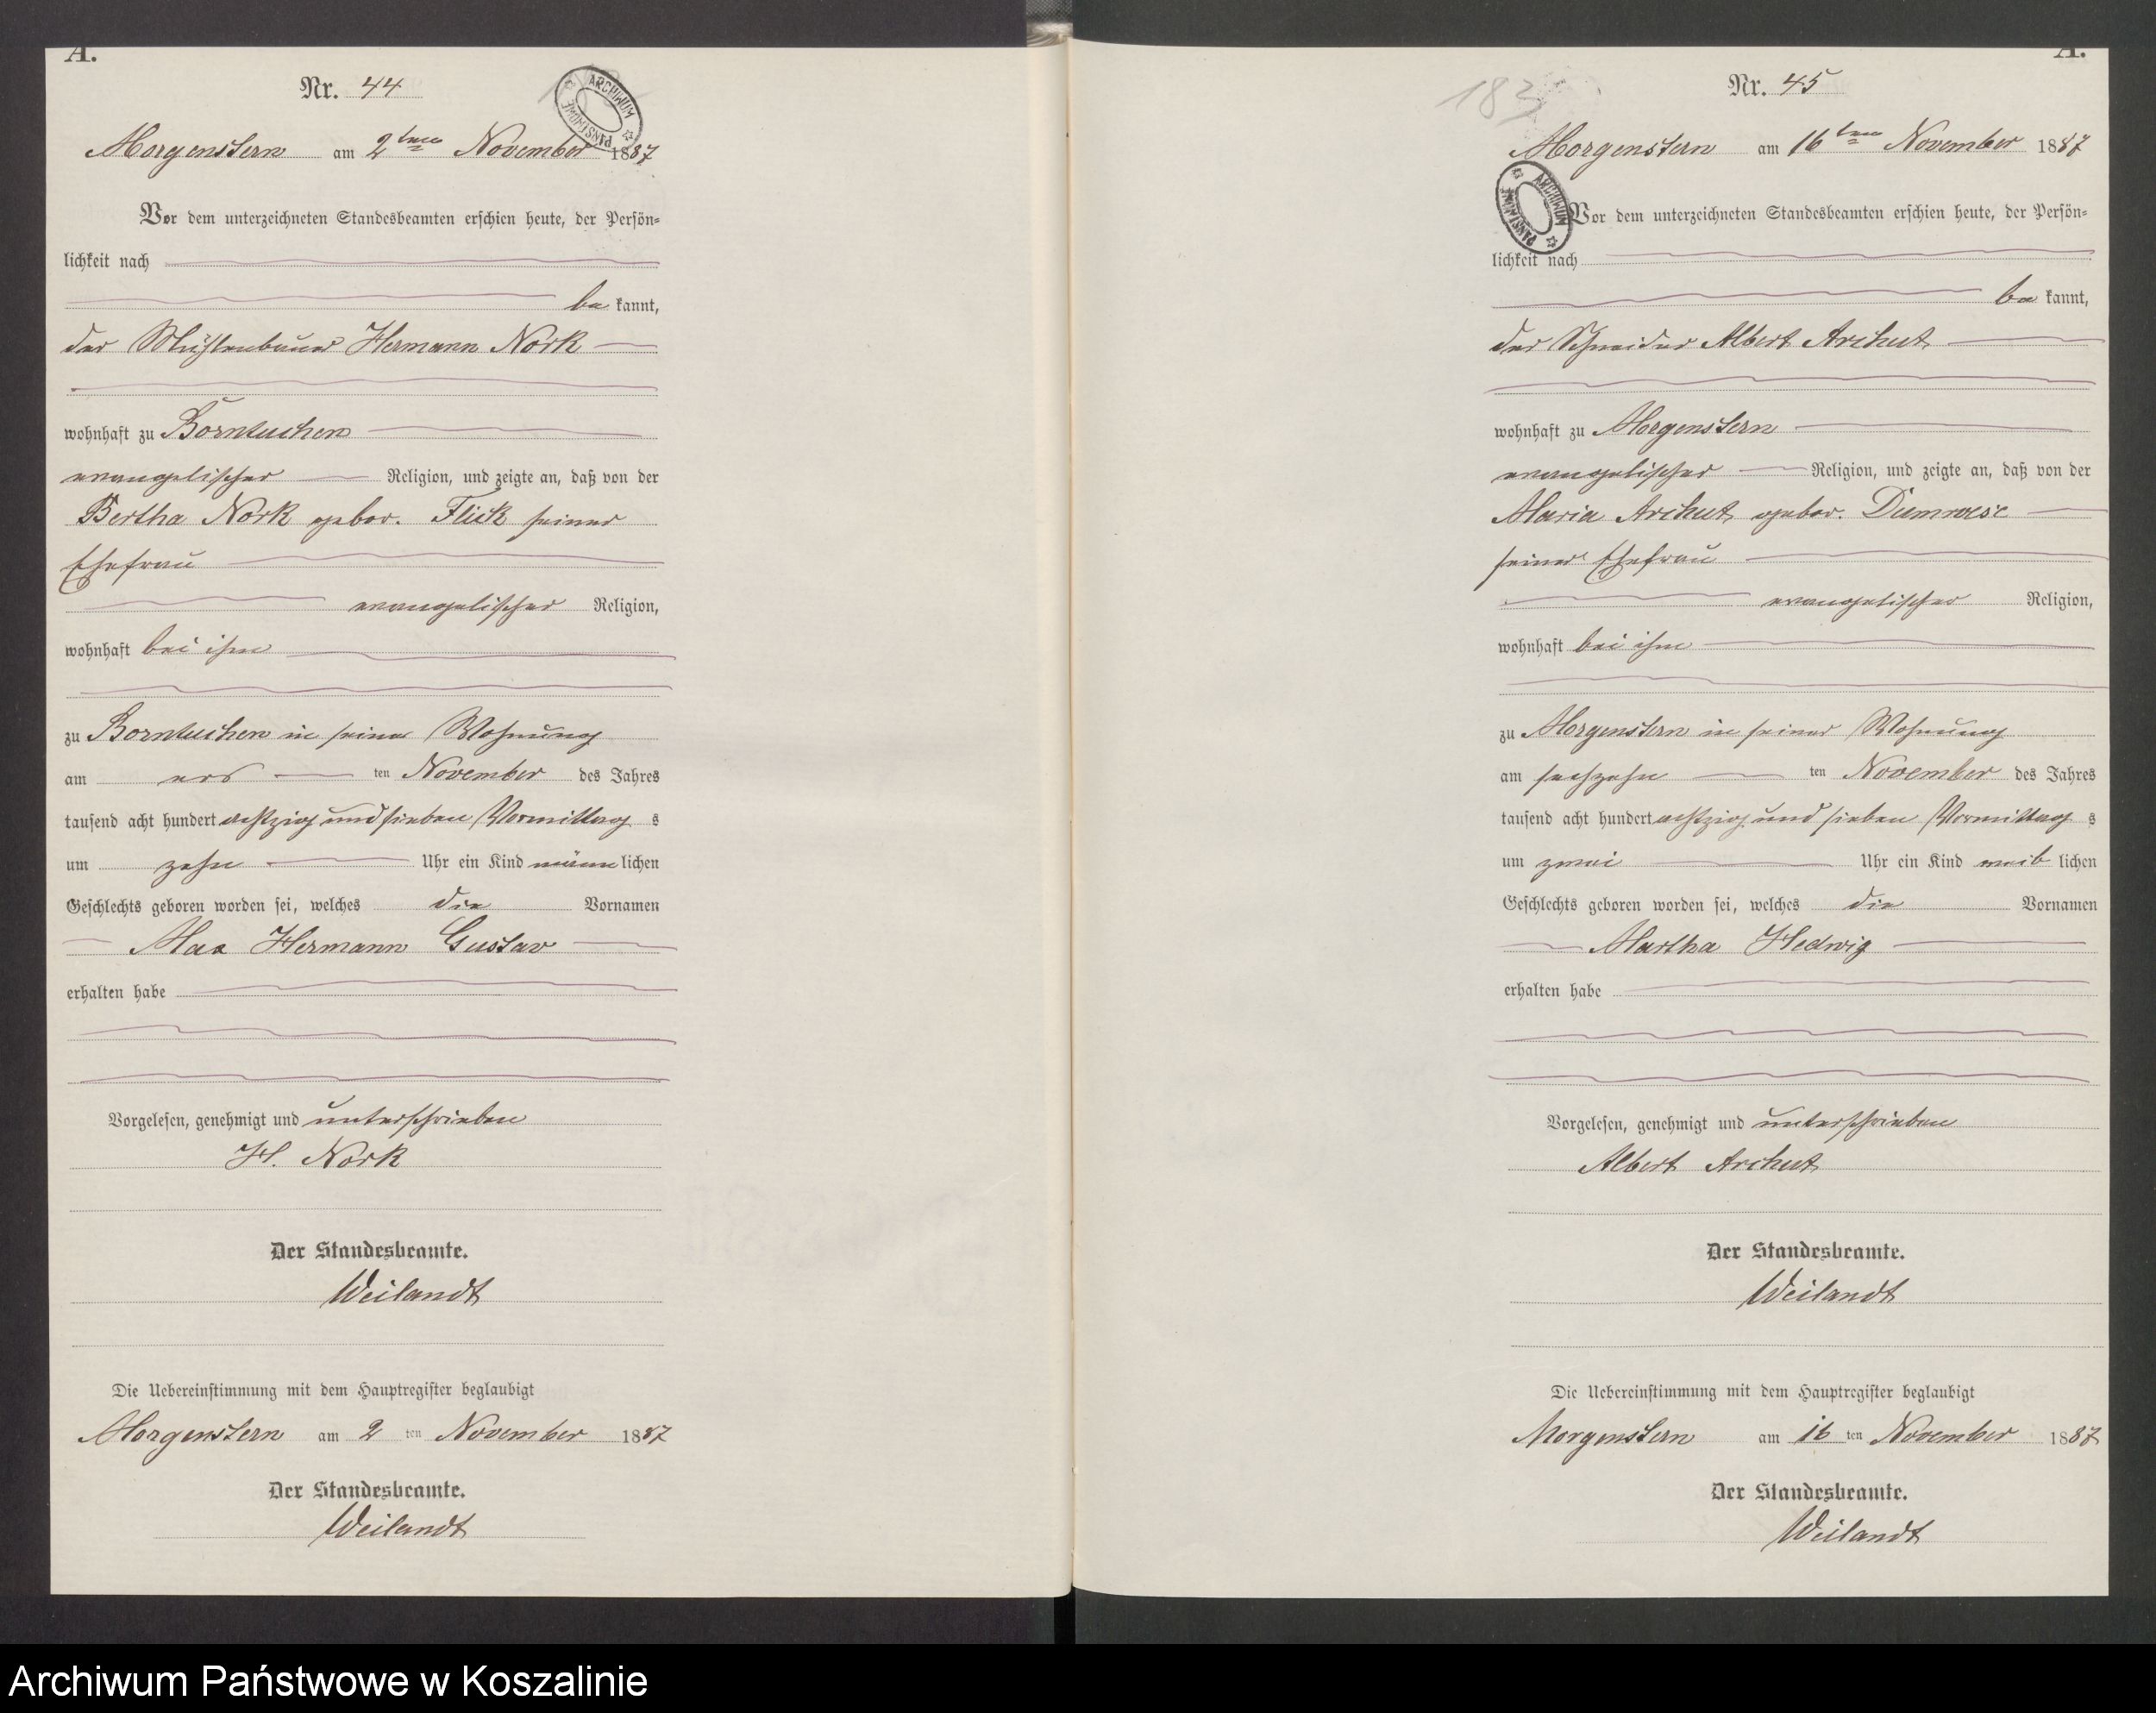 A.
Nr. 44
ARCHIWUM PAŃSTWOWE
Morgenstern am 2ten November 1887
Vor dem unterzeichneten Standesbeamten erschien heute, der Persön-
lichkeit nach
be kannt,
der Mühlenbauer Hermann Nork
wohnhaft zu Borntuchen
evangelischer Religion, und zeigte an, daß von der
Bertha Nork gebor. Flick seiner
Ehefrau
evangelischer Religion,
wohnhaft bei ihm
zu Borntuchen in seiner Wohnung
am ers ten November des Jahres
tausend acht hundert achtzig und sieben Vormittag s
um zehn Uhr ein Kind männ lichen
Geschlechts geboren worden sei, welches die Vornamen
Max Hermann Gustav
erhalten habe
Vorgelesen, genehmigt und unterschrieben
H. Nork
Der Standesbeamte.
Weilandt
Die Uebereinstimmung mit dem Hauptregister beglaubigt
Morgenstern am 2 ten November 1887
Der Standesbeamte.
Weilandt
A.
183
Nr. 45
Morgenstern am 16ten November 1887
ARCHIWUM PAŃSTWOWE
Vor dem unterzeichneten Standesbeamten erschien heute, der Persön-
lichkeit nach
be kannt,
der Schneider Albert Archut
wohnhaft zu Morgenstern
evangelischer Religion, und zeigte an, daß von der
Maria Archut gebor. Dumroese
seiner Ehefrau
evangelischer Religion,
wohnhaft bei ihm
zu Morgenstern in seiner Wohnung
am sechzehn ten November des Jahres
tausend acht hundert achtzig und sieben Vormittag s
um zwei Uhr ein Kind weib lichen
Geschlechts geboren worden sei, welches die Vornamen
Martha Hedwig
erhalten habe
Vorgelesen, genehmigt und unterschrieben
Albert Archut
Der Standesbeamte.
Weilandt
Die Uebereinstimmung mit dem Hauptregister beglaubigt
Morgenstern am 16 ten November 1887
Der Standesbeamte.
Weilandt
Archiwum Państwowe w Koszalinie